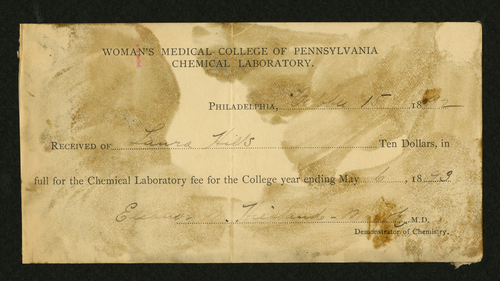 WOMAN'S MEDICAL COLLEGE OF PENNSYLVANIA
CHEMICAL LABORATORY.
PHILADELPHIA, 15 18
RECEIVED OF Laura Hills Ten Dollars, in
full for the Chemical Laboratory fee for the College year ending May 6 18 93
M.D.
Demonstrator of Chemistry.